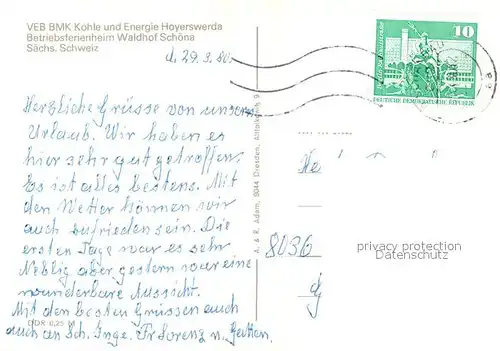 VEB BMK Kohle und Energie Hoyerswerda
Betriebsferienheim Waldhof Schöna
Sächs. Schweiz
d. 29.3.80.
Herzliche Grüsse von unserm
Urlaub. Wir haben es
hier sehr gut getroffen.
Es ist alles bestens. Mit
den Wetter können wir
auch zufrieden sein. Die
ersten Tage war es sehr
Neblig aber gestern war eine
wunderbare Aussicht.
Mit den besten Grüssen auch
auch an Sch. Inge. Fr Lorenz u.
DDR 0,25 M
A. & R. Adam, 8044 Dresden, 9
10
DEUTSCHE DEMOKRATISCHE REPUBLIK
He
8036
privacy protection
Datenschutz